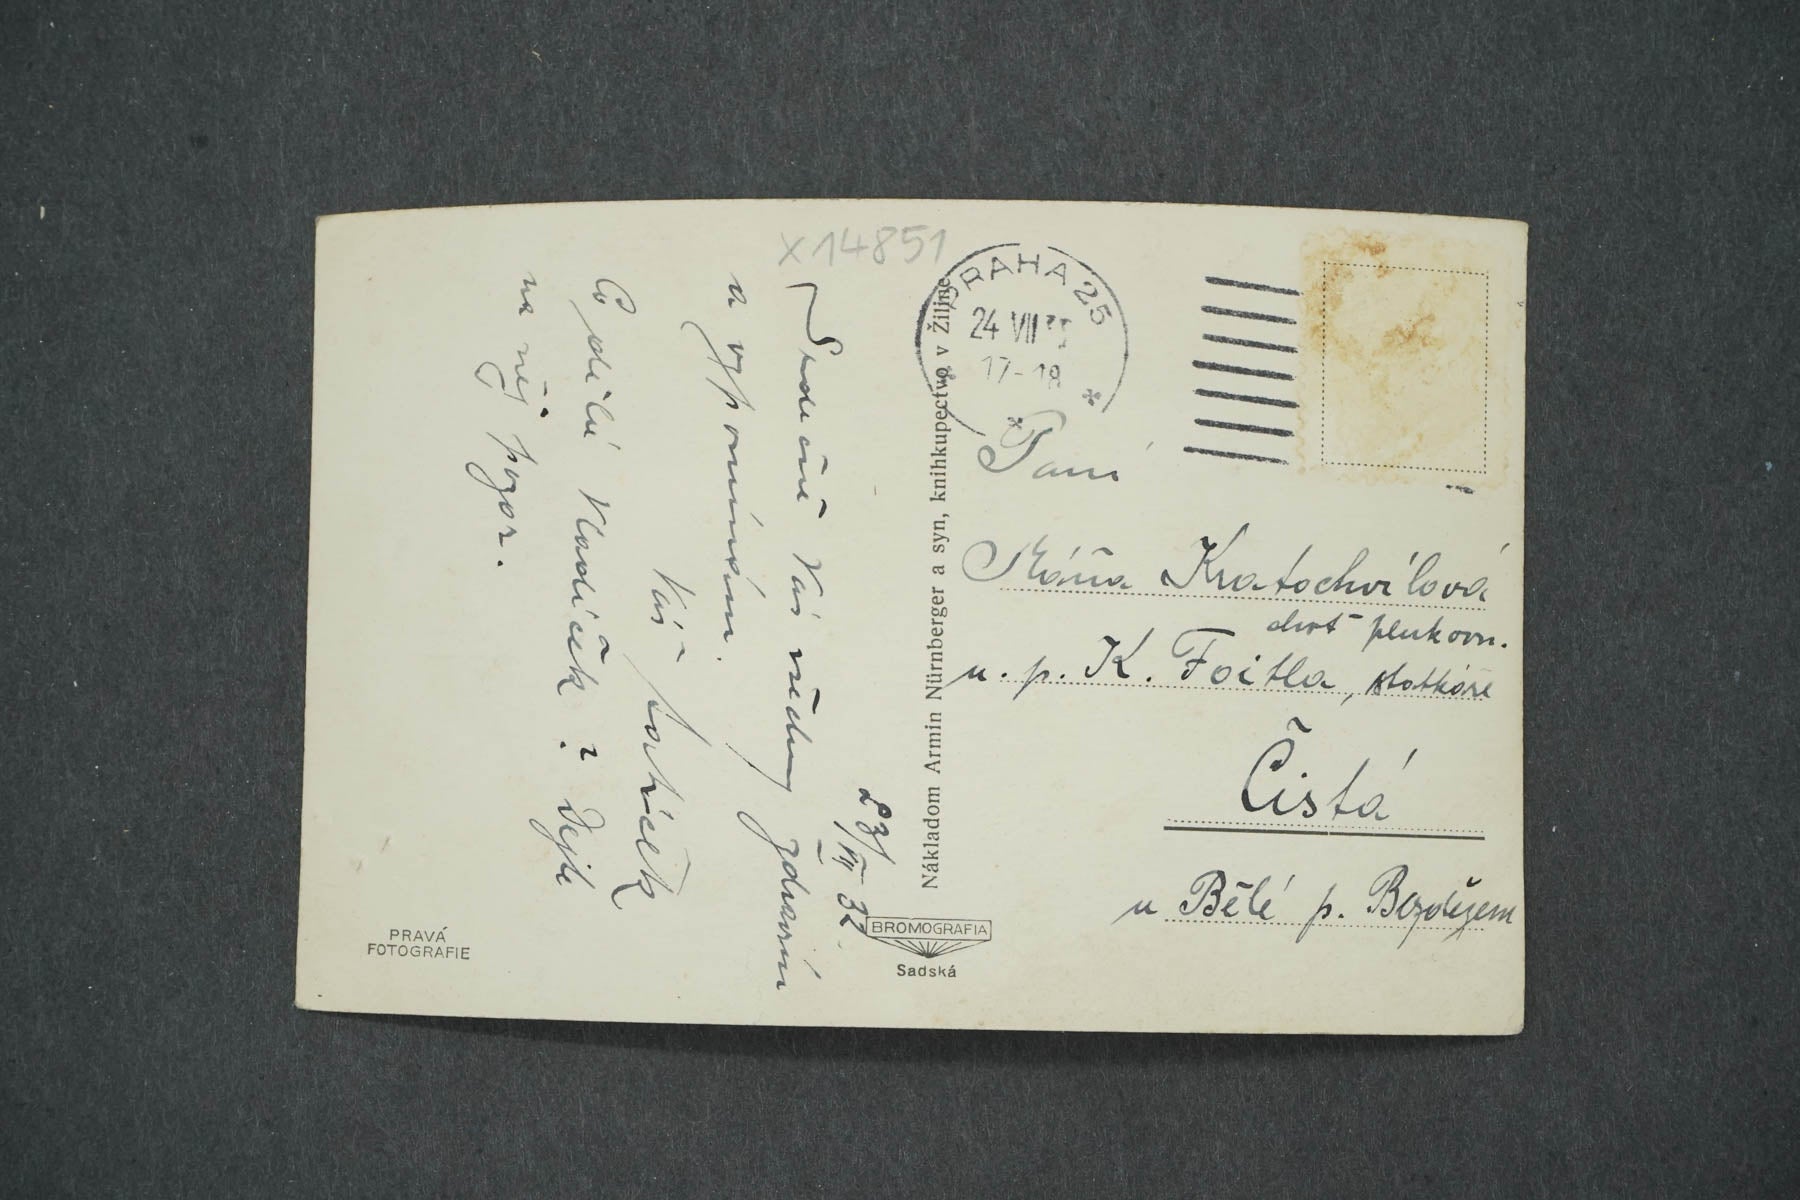 x14851
23/VII 32.
Srdečně Vás všechny zdravím
a vzpomínám.
Váš
Co dělá Vladíček? Dejte
na něj pozor.
PRAVÁ
FOTOGRAFIE
Nákladom Armin Nürnberger a syn, knihkupectvo v Žiline
BROMOGRAFIA
Sadská
PRAHA 25
24 VII
17-18
Paní
Máňa Kratochvílová
choť plukovn.
u. p. K. Foitla, statkáře
Čistá
u Bělé p. Bezdězem